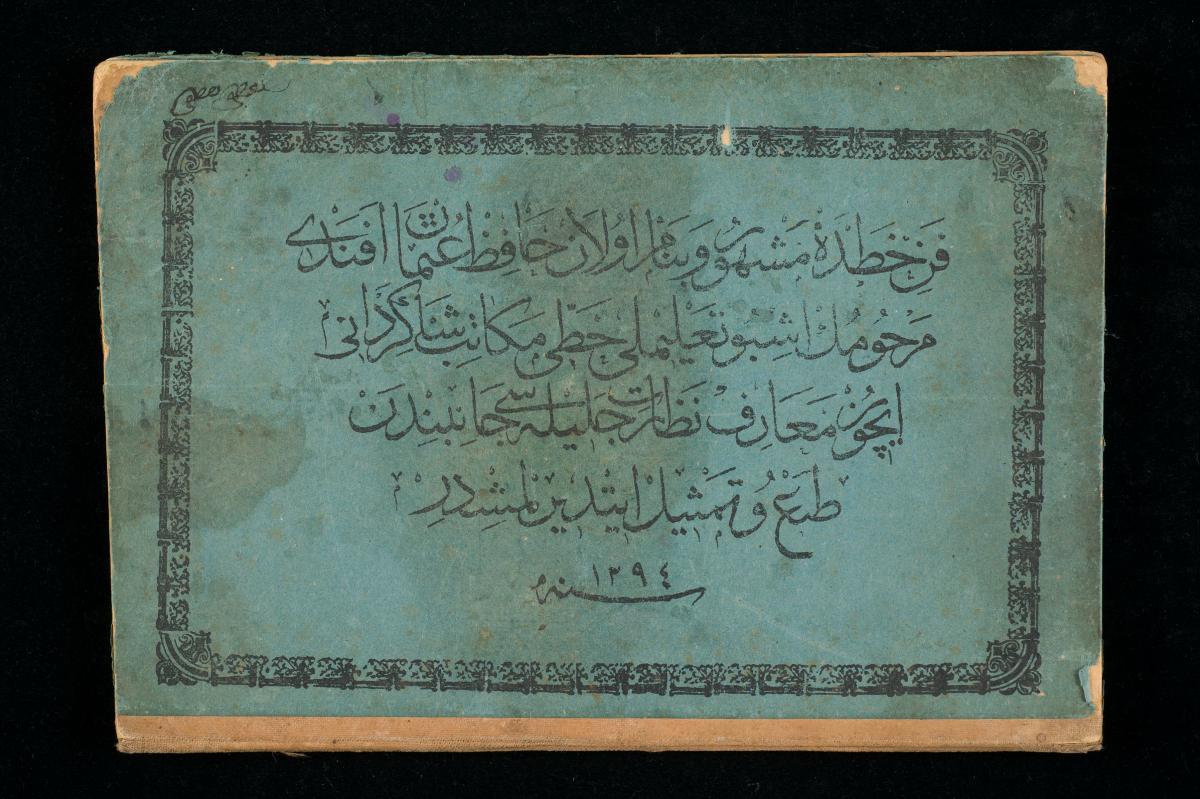 فن خطده مشهور و بنام اولان حافظ عثمان افندی
مرحومك اشبو تعلیملی خطی مکاتب شاگردانی
ایچون معارف نظارت جلیله سی جانبندن
طبع و تمثیل ایتدیرلمشدر
سنه ١٢٩٤